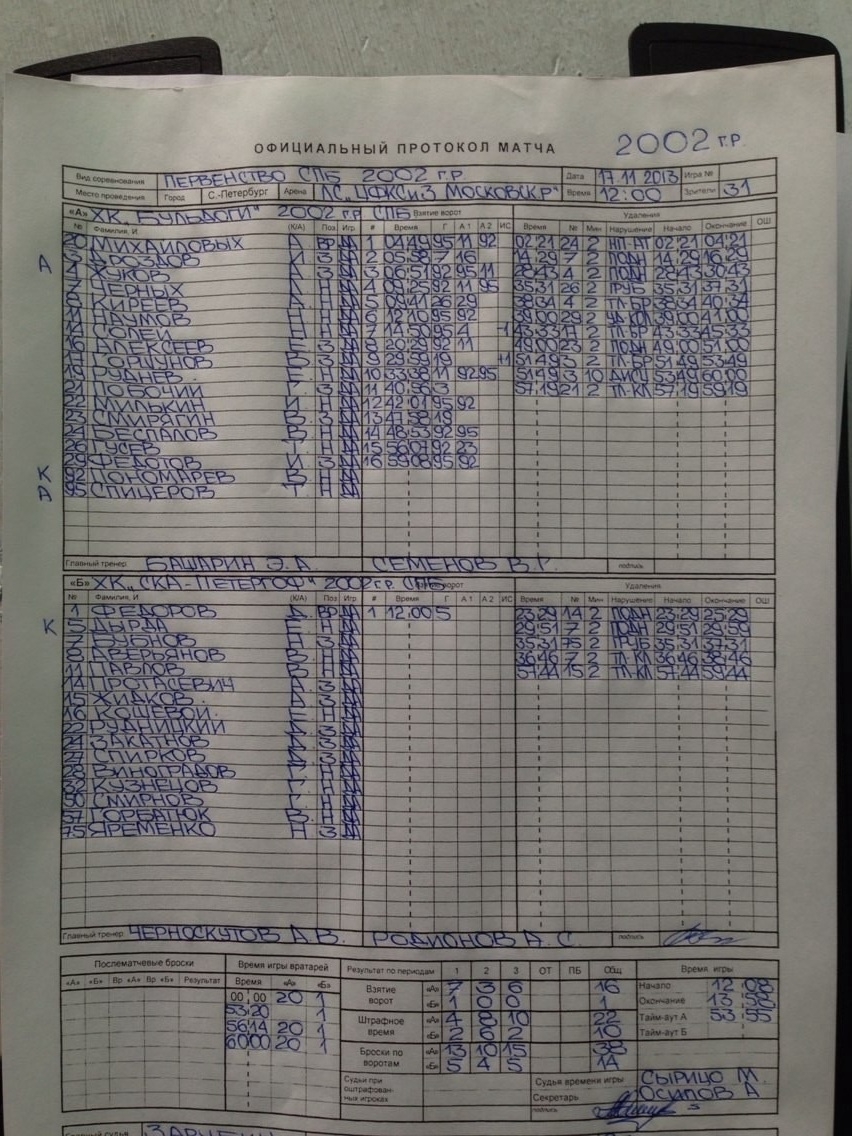 ОФИЦИАЛЬНЫЙ ПРОТОКОЛ МАТЧА 2002 г.р.
Вид соревнования ПЕРВЕНСТВО СПБ 2002 г.р. Дата 17.11.2013 Игра №
Место проведения Город С.-Петербург Арена ЛС "ЦФКСиЗ МОСКОВСК.Р" Время 12:00 Зрители 31
«А» ХК "БУЛЬДОГИ" 2002 г.р. СПБ Взятие ворот Удаления
№ Фамилия, И. (К/А) Поз Игр # Время Г А1 А2 ИС Время № Мин Нарушение Начало Окончание ОШ
20 МИХАЙЛОВЫХ А ВР ДА 1 04:49 95 11 92 02:21 24 2 НП-АТ 02:21 04:21
А ДРОЗДОВ И З ДА 2 05:58 7 16 14:29 7 2 ПОДН 14:29 16:29
ЖУКОВ А З ДА 3 06:51 92 95 11 28:43 4 2 ПОДН 28:43 30:43
ЧЕРНЫХ А Н ДА 4 09:25 92 11 95 35:31 26 2 ГРУБ 35:31 37:31
КИРЕЕВ Н ДА 5 09:41 26 29 38:34 4 2 ТЛ-БР 38:34 40:34
НАУМОВ Н ДА 6 12:10 95 92 39:00 29 2 39:00 41:00
Н ДА 7 14:50 95 4 -1 43:33 2 ТЛ-БР 43:33 45:33
16 АЛЕКСЕЕВ Е З ДА 8 20:29 92 11 49:00 23 2 ПОДН 49:00 51:00
ДА 9 29:59 19 +1 51:49 3 2 ТЛ-БР 51:49 53:49
19 РУДНЕВ Н ДА 10 33:38 11 92 95 51:49 3 10 ДИСЦ 53:49 60:00
21 ЛОБОЧИЙ Г З ДА 11 40:56 3 57:19 21 2 ТЛ-КЛ 57:19 59:19
22 МИЛЬКИН И Н ДА 12 42:01 95 92
23 СМИРЯГИН З ДА 13
24 БЕСПАЛОВ В Н ДА 14 48:53 92 95
ГУСЕВ Н ДА 15 92 23
ФЕДОТОВ И З ДА 16 59:08 95 92
К 92 ПОНОМАРЕВ В Н ДА
А 95 СПИЦЕРОВ Т Н ДА
Главный тренер БАШАРИН Э.А. СЕМЕНОВ В.Г. подпись
«Б» ХК "СКА-ПЕТЕРГОФ" 2002 г.р. СПБ Взятие ворот Удаления
№ Фамилия, И. (К/А) Поз Игр # Время Г А1 А2 ИС Время № Мин Нарушение Начало Окончание ОШ
1 ФЕДОРОВ А ВР ДА 1 12:00 5 23:29 14 2 ПОДН 23:29 25:29
К 5 ДЫРДА Н ДА 29:51 7 2 ПОДН 29:51 29:59
БУБНОВ Н ДА 35:31 75 2 ГРУБ 35:31 37:31
АВЕРЬЯНОВ Н ДА 36:46 7 2 ТЛ-КЛ 36:46 38:46
11 ПАВЛОВ Н ДА 57:44 15 2 ТЛ-КЛ 57:44 59:44
14 ПРОТАСЕВИЧ А З ДА
15 ЖИДКОВ З ДА
16 КОШЕВОЙ Н ДА
22 РУДНИЦКИЙ ДА
ЗАКАТОВ З ДА
24 СПИРКОВ З ДА
28 ВИНОГРАДОВ Г Н ДА
КУЗНЕЦОВ Н ДА
СМИРНОВ Г Н ДА
57 ГОРБАТЮК В Н ДА
75 ЯРЕМЕНКО Н З ДА
Главный тренер ЧЕРНОСКУТОВ А.В. РОДИОНОВ А.С. подпись
Послематчевые броски Время игры вратарей Результат по периодам 1 2 3 ОТ ПБ Общ Время игры
«А» «Б» Вр «А» Вр «Б» Результат Время «А» «Б»
Взятие ворот «А» 7 3 6 16 Начало 12 08
00:00 20 1 «Б» 1 0 0 1 Окончание 13 58
53:20 1 Штрафное время «А» 4 8 10 22 Тайм-аут А 53 55
56:14 20 1 «Б» 2 6 2 10 Тайм-аут Б
60:00 20 1 Броски по воротам «А» 13 10 15 38
«Б» 5 4 5 14
Судьи при оштрафованных игроках Судья времени игры СЫРИЦО М.
Секретарь ОСИПОВ А
подпись
Главный судья ЗАРУБИН